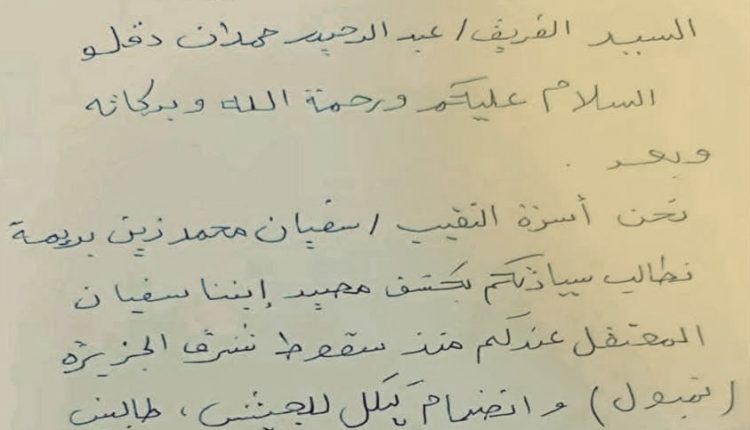 السيد الفريق/ عبد الرحيم حمدان دقلو
السلام عليكم ورحمة الله وبركاته
وبعد .
نحن أسرة النقيب / سفيان محمد زين بريمة
نطالب سيادتكم بكشف مصير إبننا سفيان
المعتقل عندكم منذ سقوط شرق الجزيرة
(تمبول) و انضمام كيكل للجيش ،